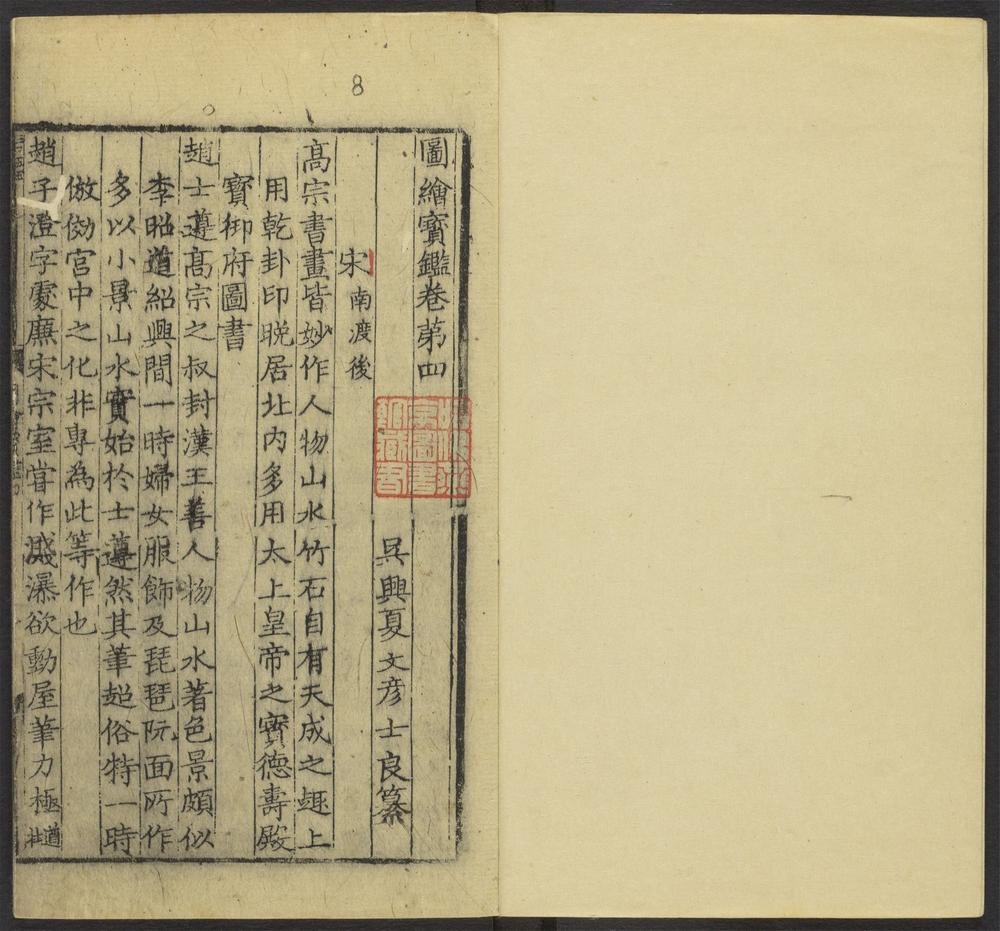 8
圖繪寶鑑卷第四
吳興夏文彥士良纂
宋南渡後
高宗書畫皆妙作人物山水竹石自有天成之趣上
用乾卦印晚居北内多用太上皇帝之寶德壽殿
寶御府圖書
趙士遵高宗之叔封漢王善人物山水著色景頗似
李昭道紹興間一時婦女服飾及琵琶阮面所作
多以小景山水實始於士遵然其筆超俗特一時
倣効宮中之化非專為此等作也
趙子澄字處廉宋宗室甞作濺瀑欲動屋筆力極遒壯